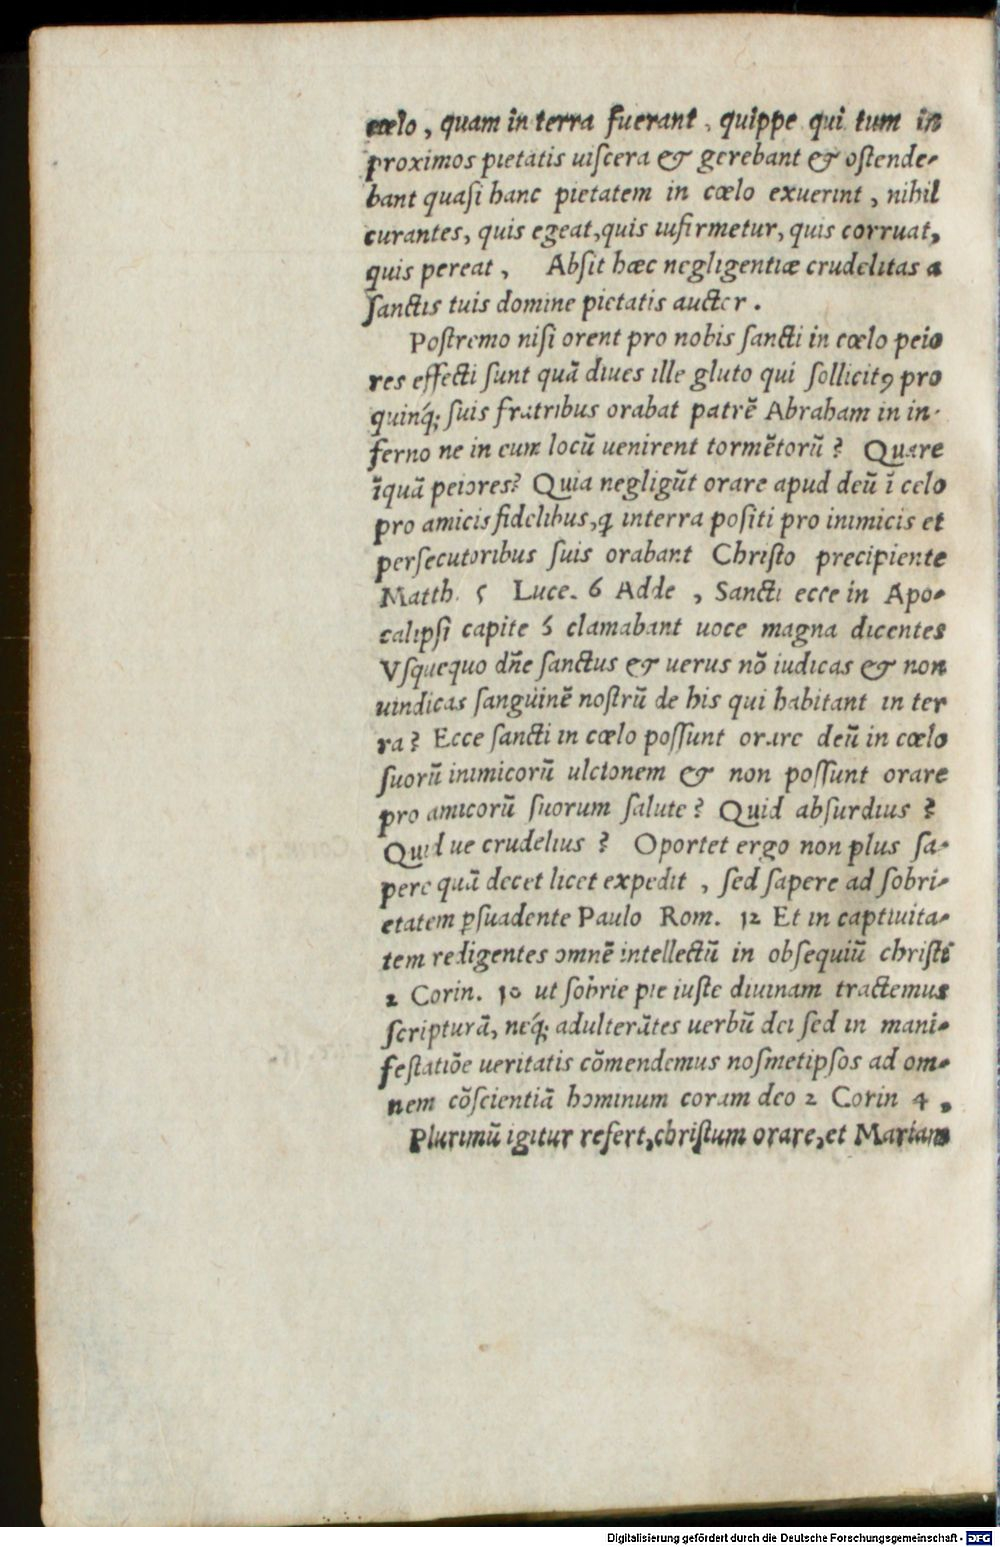 cœlo, quam in terra fuerant, quippe qui tum in
proximos pietatis uiſcera & gerebant & oſtende-
bant quaſi hanc pietatem in cœlo exuerint, nihil
curantes, quis egeat, quis iufirmetur, quis corruat,
quis pereat, Abſit hæc negligentiæ crudelitas a
ſanctis tuis domine pietatis aucter.
Poſtremo niſi orent pro nobis ſancti in cœlo peio
res effecti ſunt quā diues ille gluto qui ſollicitꝰ pro
quinq́; ſuis fratribus orabat patrē Abraham in in-
ferno ne in eum locū uenirent tormētorū? Quare
īquā peiores? Quia negligūt orare apud deū ī celo
pro amicis fidelibus, ꝗ interra poſiti pro inimicis et
perſecutoribus ſuis orabant Chriſto precipiente
Matth. 5 Luce. 6 Adde, Sancti ecce in Apo-
calipſi capite 6 clamabant uoce magna dicentes
Vſquequo dñe ſanctus & uerus nō iudicas & non
uindicas ſanguinē noſtrū de his qui habitant in ter
ra? Ecce ſancti in cœlo poſſunt orare deū in cœlo
ſuorū inimicorū ulctonem & non poſſunt orare
pro amicorū ſuorum ſalute? Quid abſurdius?
Quid ue crudelius? Oportet ergo non plus ſa-
pere quā decet licet expedit, ſed ſapere ad ſobri-
etatem ꝑſuadente Paulo Rom. 12 Et in captiuita-
tem redigentes omnē intellectū in obſequiū chriſti
2 Corin. 10 ut ſobrie pie iuſte diuinam tractemus
ſcripturā, neq́; adulterātes uerbū dei ſed in mani-
feſtatiōe ueritatis cōmendemus noſmetipſos ad om-
nem cōſcientiā hominum coram deo 2 Corin 4,
Plurimū igitur refert, chriſtum orare, et Mariam
Digitalisierung gefördert durch die Deutsche Forschungsgemeinschaft - DFG